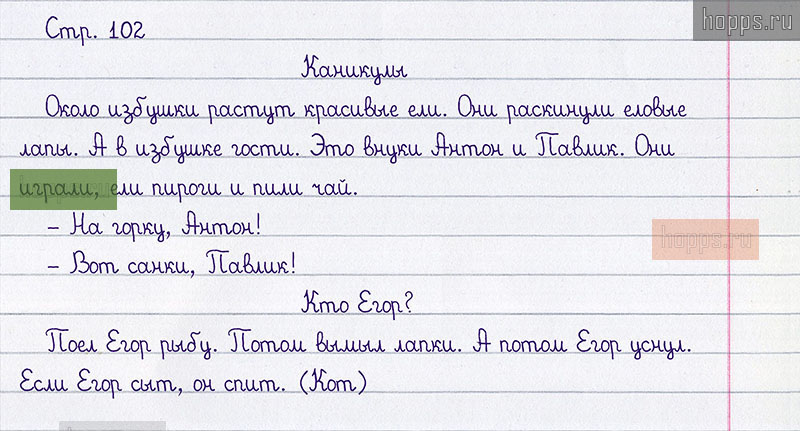 Стр. 102
hopps.ru
Каникулы
Около избушки растут красивые ели. Они раскинули еловые
лапы. А в избушке гости. Это внуки Антон и Павлик. Они
играли, ели пироги и пили чай.
– На горку, Антон!
hopps.ru
– Вот санки, Павлик!
Кто Егор?
Поел Егор рыбу. Потом вымыл лапки. А потом Егор уснул.
Если Егор сыт, он спит. (Кот)